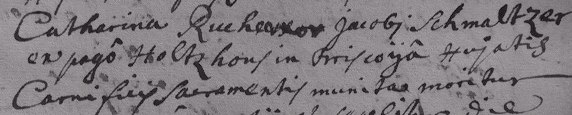 Catharina Rucher uxor Jacobj Schmaltzer
ex pagô Holtzhous in Brisgoiâ Hujatis
Carnificis Sacramentis munita moritur
die